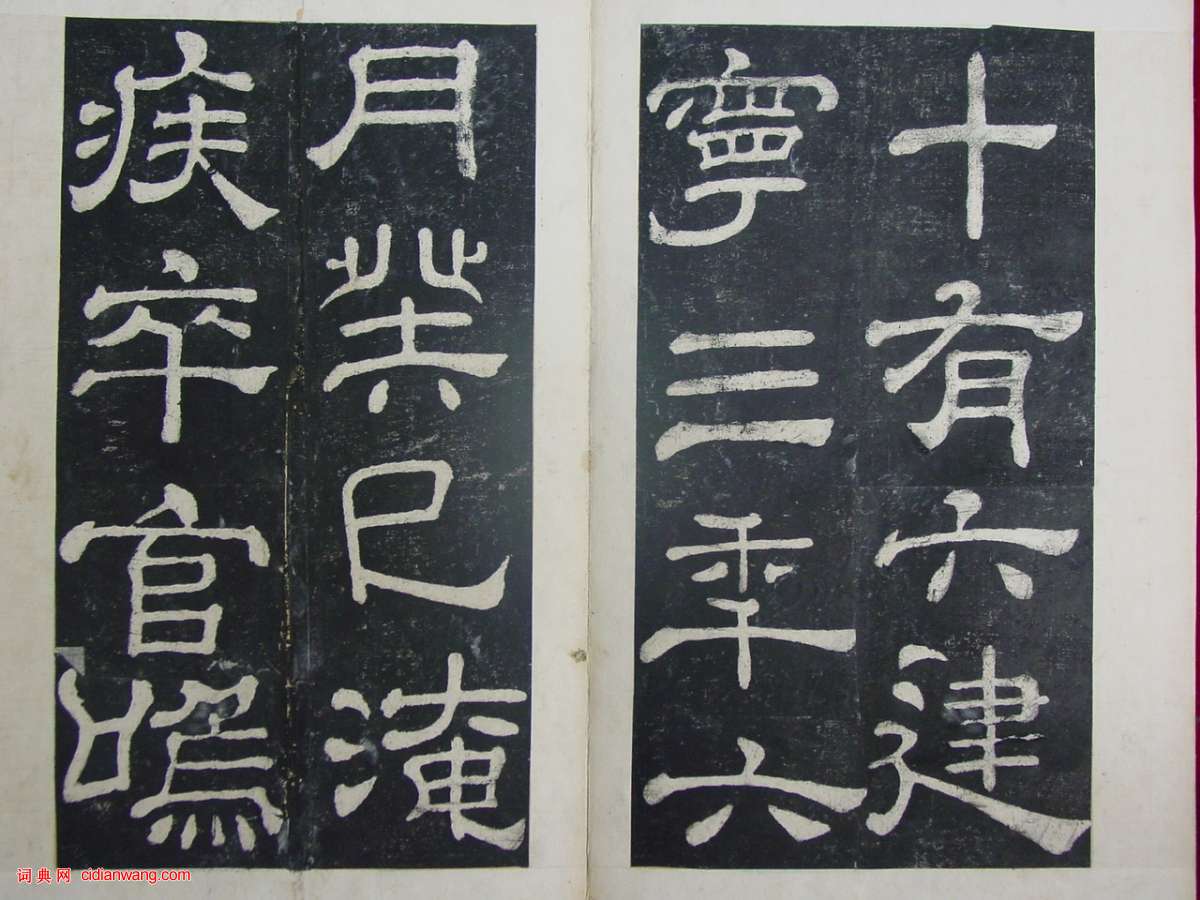 十有六建
寧三年六
月癸巳淹
疾卒官嗚
词典网 cidianwang.com